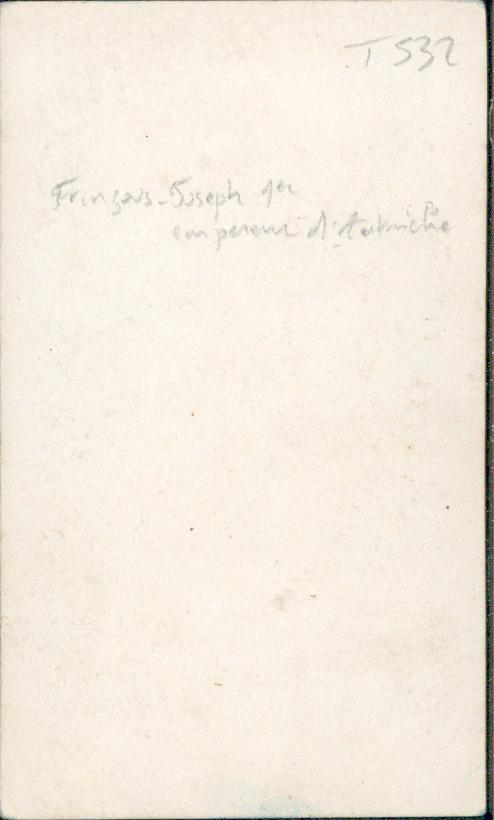 T 532
François-Joseph 1er
empereur d'Autriche